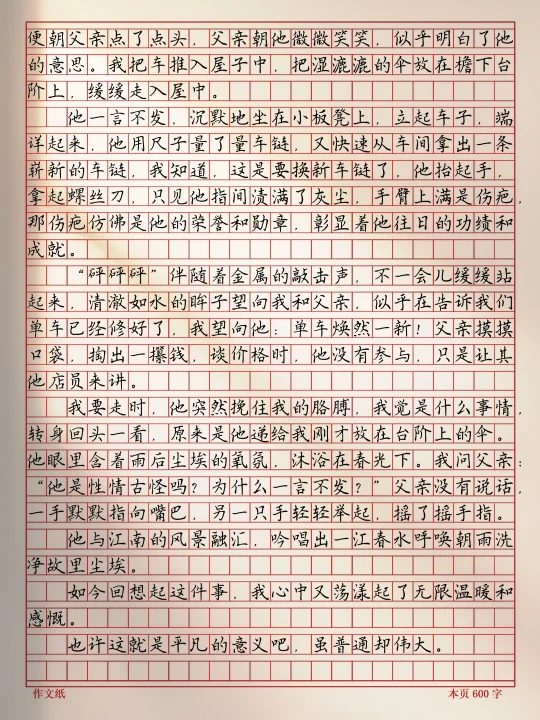 便朝父亲点了点头，父亲朝他微微笑笑，似乎明白了他
的意思。我把车推入屋子中，把湿漉漉的伞放在檐下台
阶上，缓缓走入屋中。
他一言不发，沉默地坐在小板凳上，立起车子，端
详起来，他用尺子量了量车链，又快速从车间拿出一条
崭新的车链，我知道，这是要换新车链了，他抬起手，
拿起螺丝刀，只见他指间渍满了灰尘，手臂上满是伤疤，
那伤疤仿佛是他的荣誉和勋章，彰显着他往日的功绩和
成就。
“砰砰砰”伴随着金属的敲击声，不一会儿缓缓站
起来，清澈如水的眸子望向我和父亲，似乎在告诉我们
单车已经修好了，我望向他：单车焕然一新！父亲摸摸
口袋，掏出一攥钱，谈价格时，他没有参与，只是让其
他店员来讲。
我要走时，他突然挽住我的胳膊，我觉是什么事情，
转身回头一看，原来是他递给我刚才放在台阶上的伞。
他眼里含着雨后尘埃的氧氛，沐浴在春光下。我问父亲：
“他是性情古怪吗？为什么一言不发？”父亲没有说话，
一手默默指向嘴巴，另一只手轻轻举起，摇了摇手指。
他与江南的风景融汇，吟唱出一江春水呼唤朝雨洗
净故里尘埃。
如今回想起这件事，我心中又荡漾起了无限温暖和
感慨。
也许这就是平凡的意义吧，虽普通却伟大。
作文纸 本页 600 字